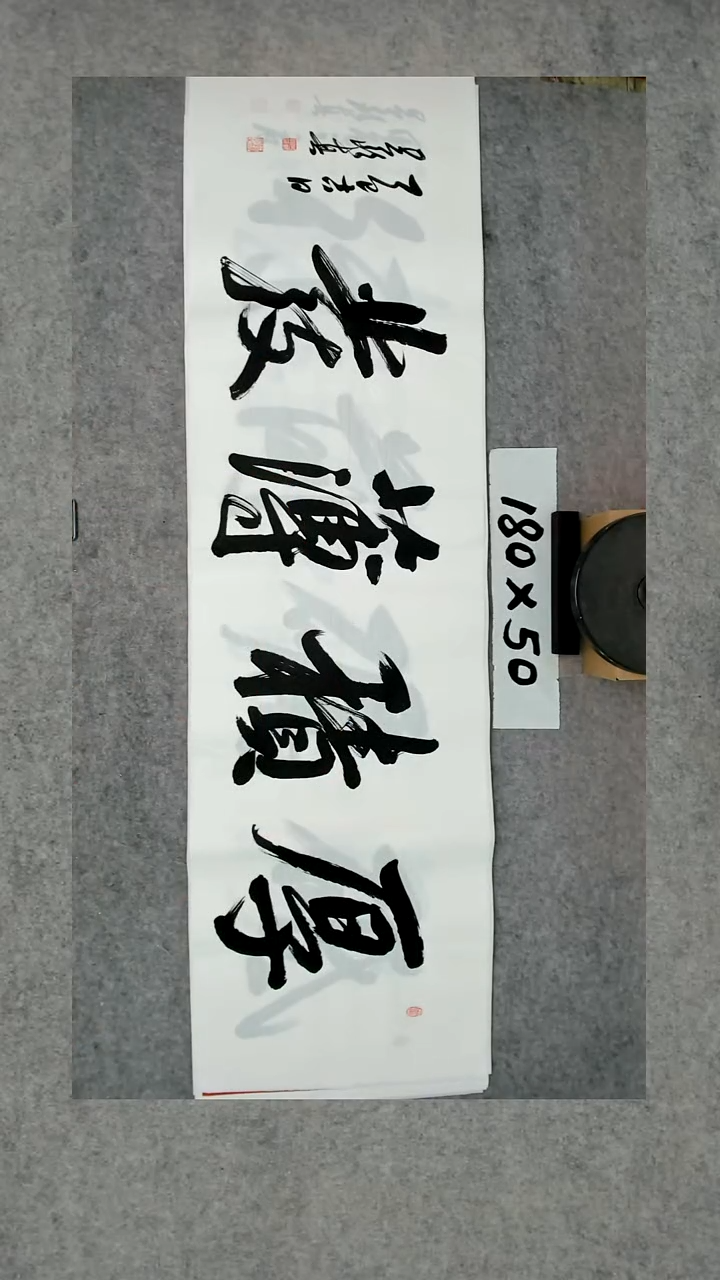 厚積薄發
180X50